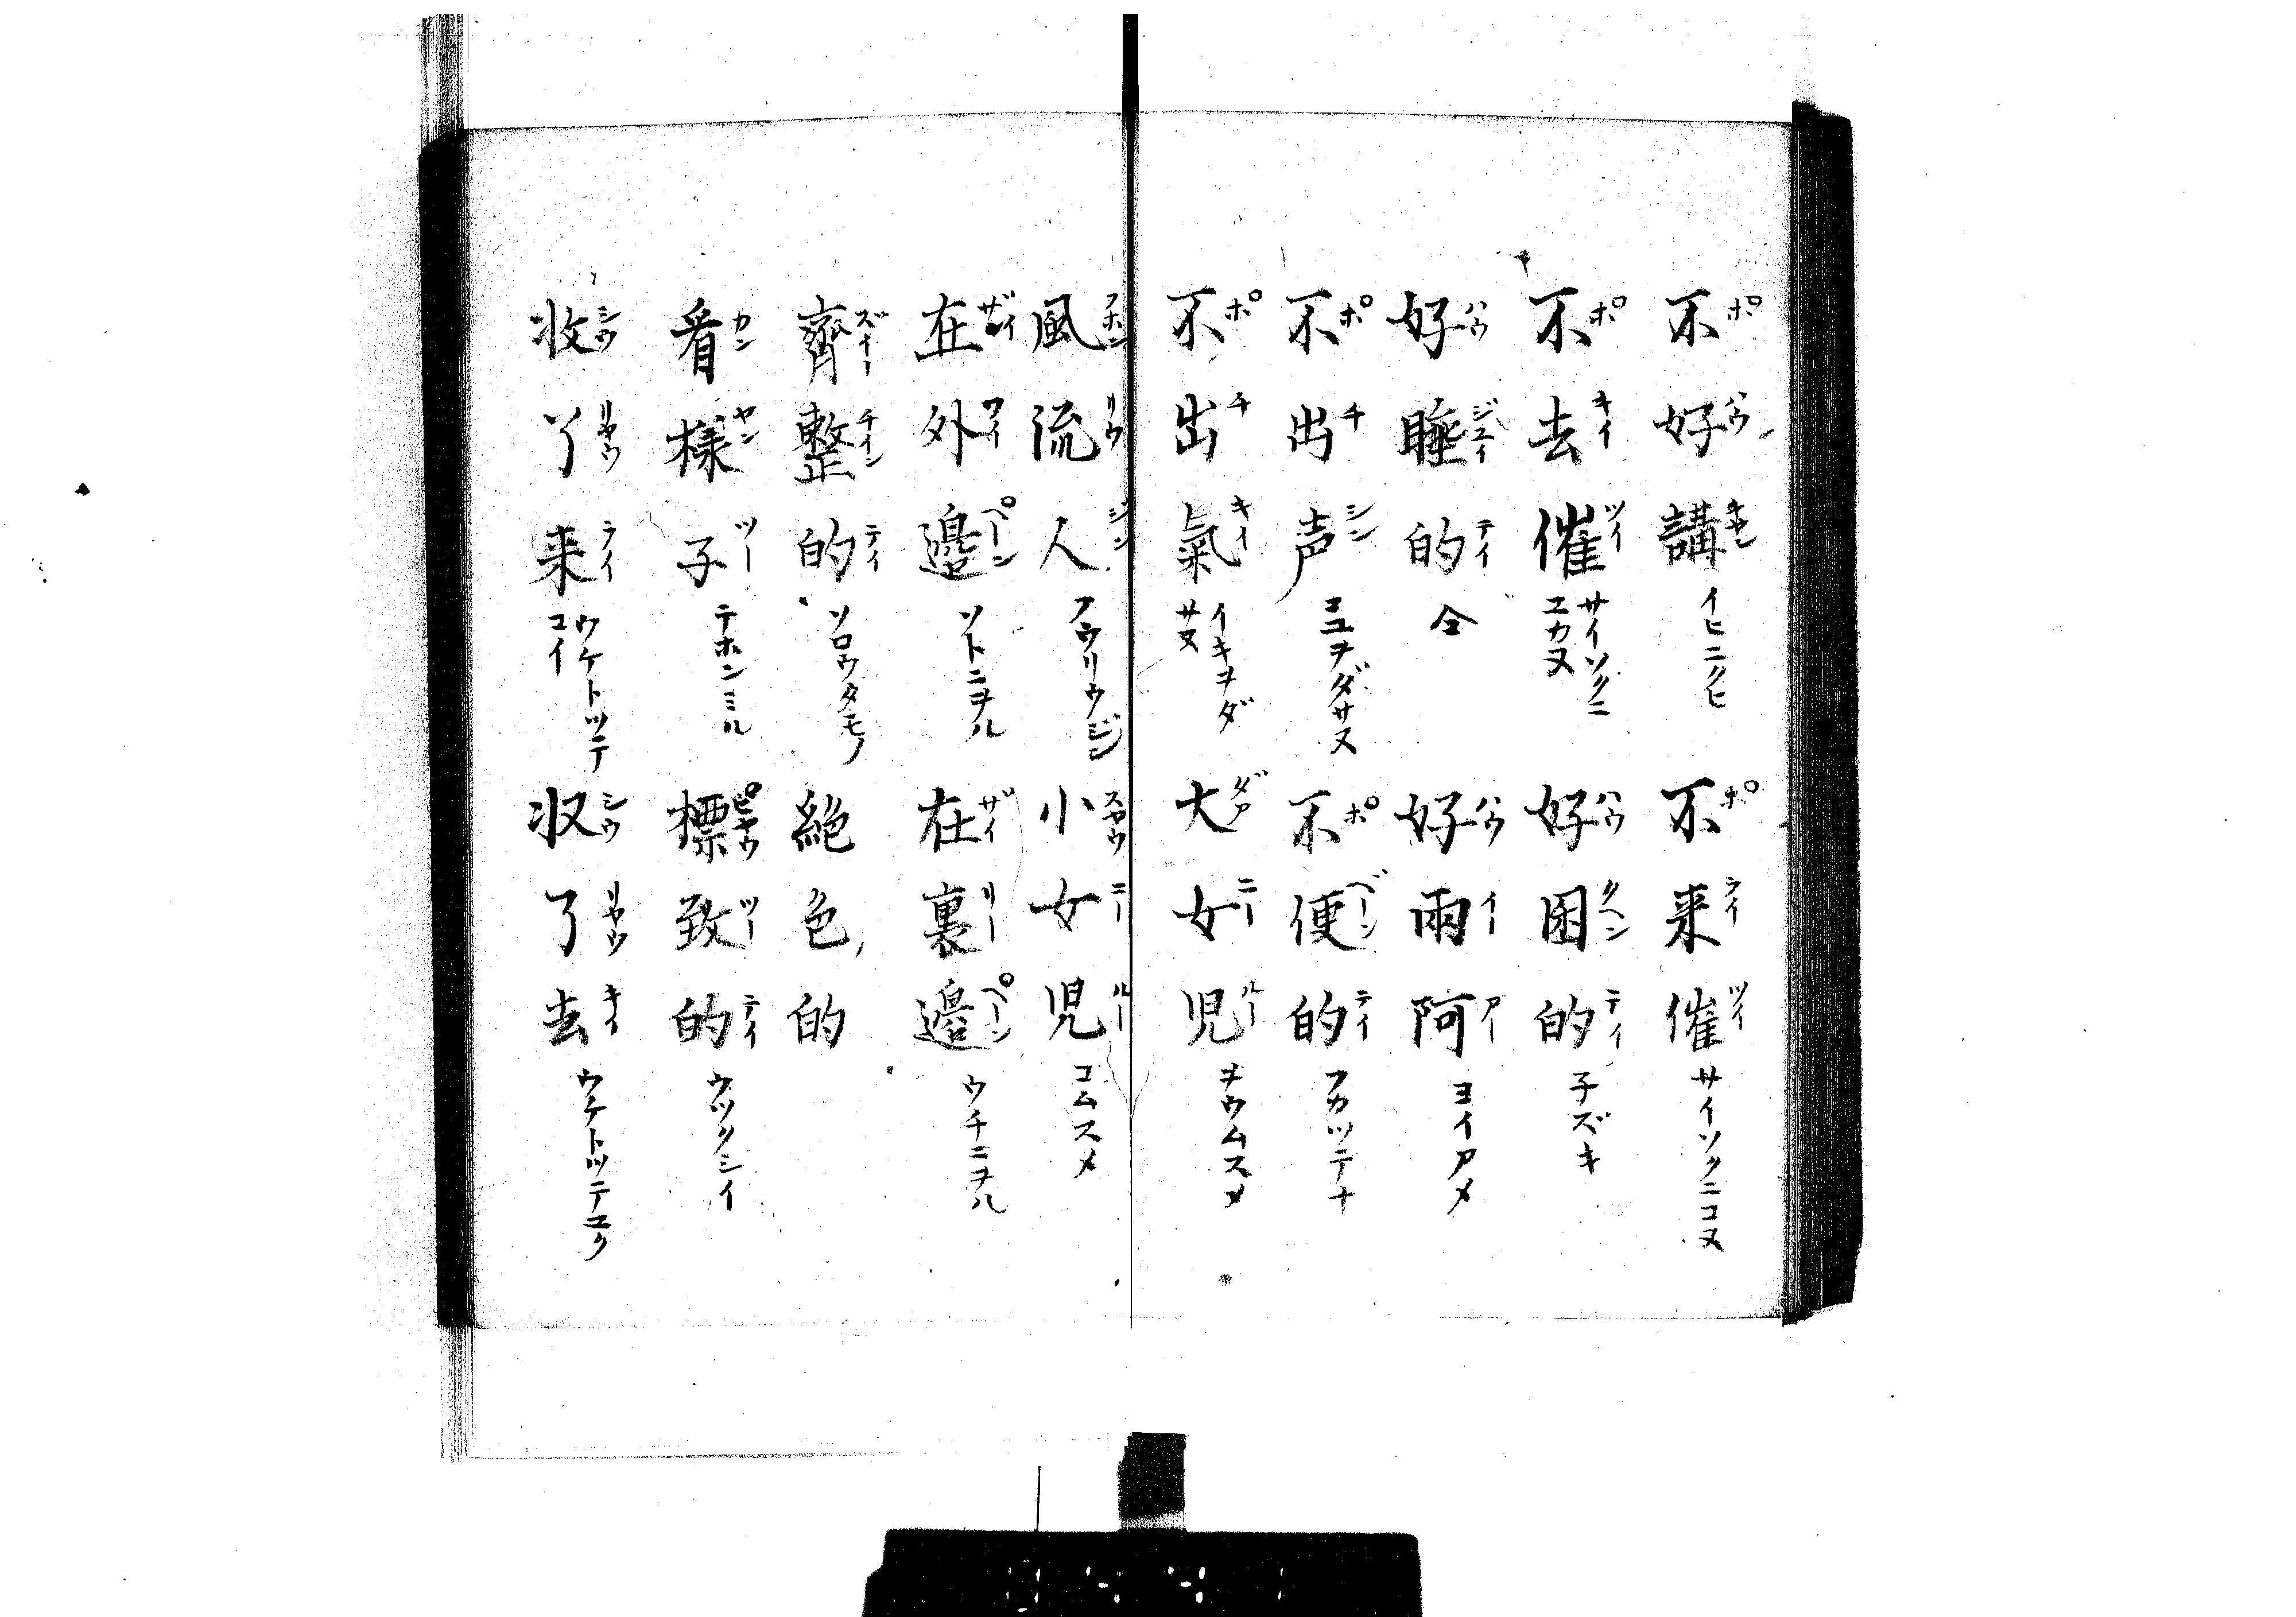 不好講 イヒニクヒ 不来催 サイソクニコヌ
不去催 サイソクニユカヌ 好困的 子ズキ
好睡的 仝 好雨阿 ヨイアメ
不出声 コヱヲダサヌ 不便的 フカツテナ
不出氣 イキヲダサヌ 大女児 ヲウムスメ
風流人 フウリウジン 小女児 コムスメ
在外邉 ソトニヲル 在裏邉 ウチニヲル
齊整的 ソロウタモノ 絕色的
看樣子 テホンミル 標致的 ウツクシイ
收了来 ウケトツテコイ 収了去 ウケトツテユク